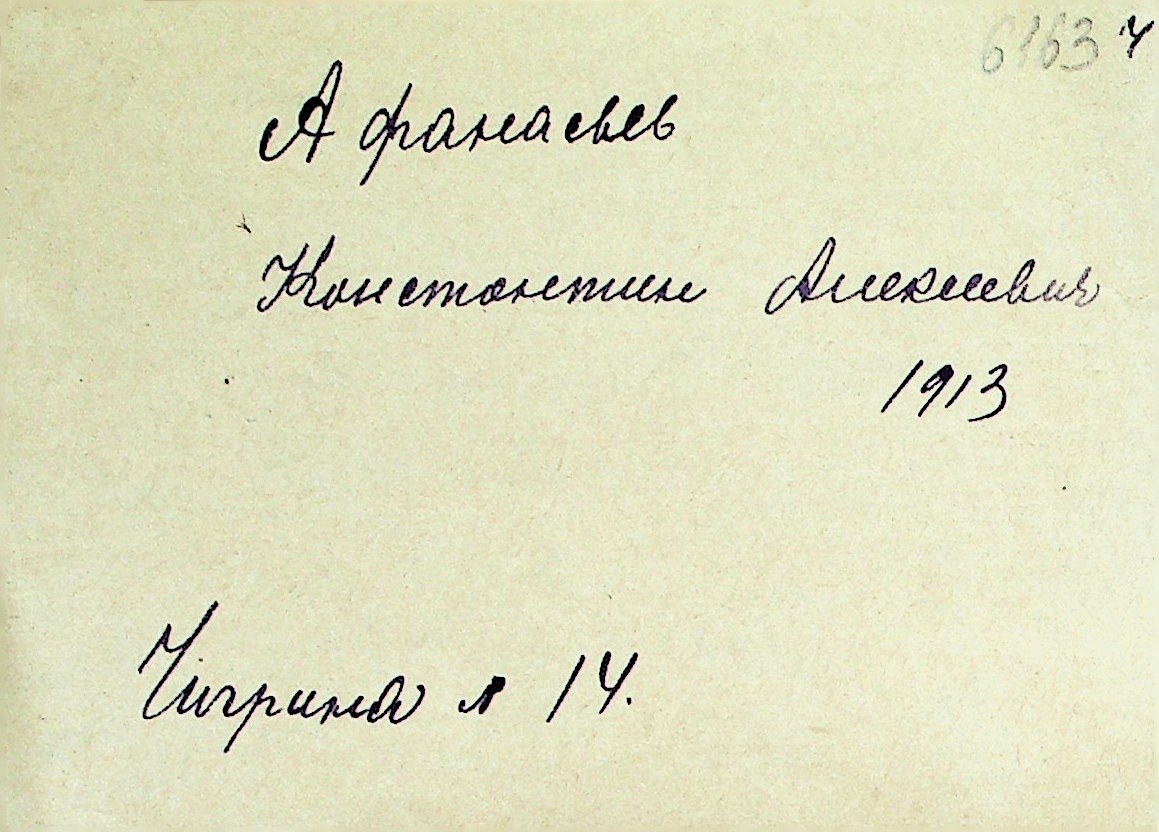 6163 ч
Афанасьев
Константин Алексеевич
1913
Чигрина 14.